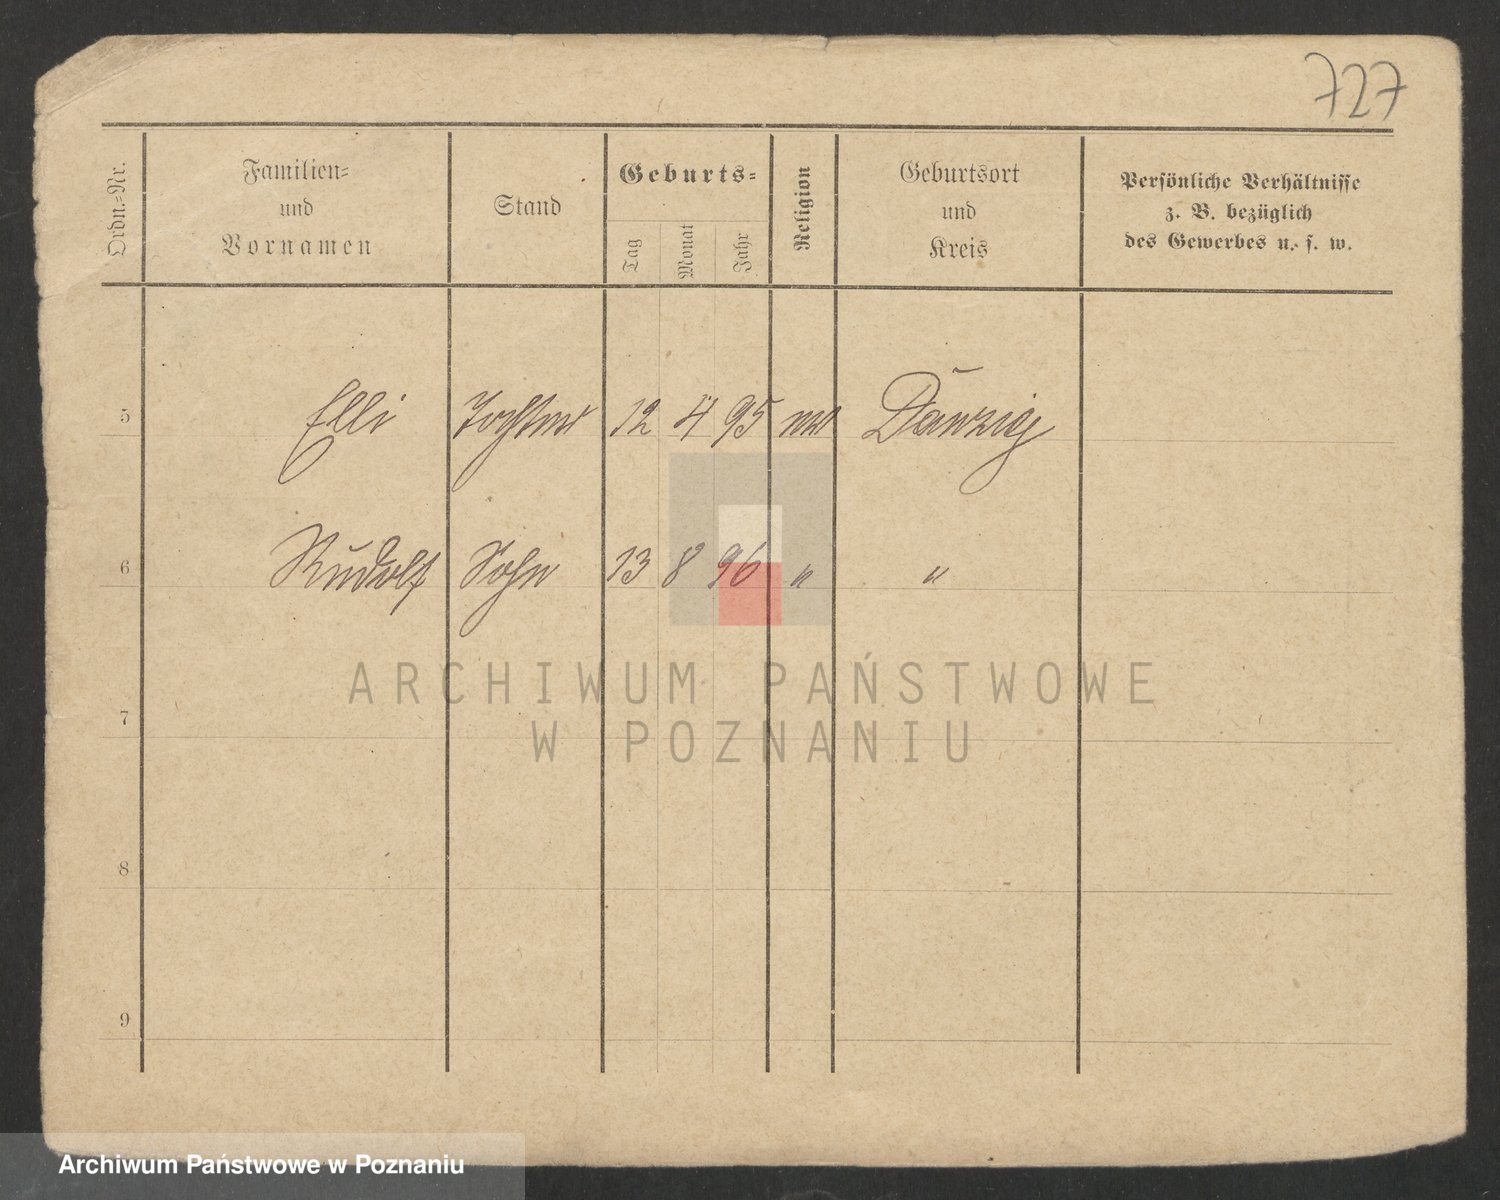 727
Ordn.-Nr.
Familien-
und
Vornamen
Stand
Geburts-
Tag
Monat
Jahr
Religion
Geburtsort
und
Kreis
Persönliche Verhältnisse
z. B. bezüglich
des Gewerbes u. s. w.
5 Elli Tochter 12 4 95 Danzig
6 Rudolf Sohn 13 8 96 " "
7
8
9
ARCHIWUM PAŃSTWOWE
W POZNANIU
Archiwum Państwowe w Poznaniu